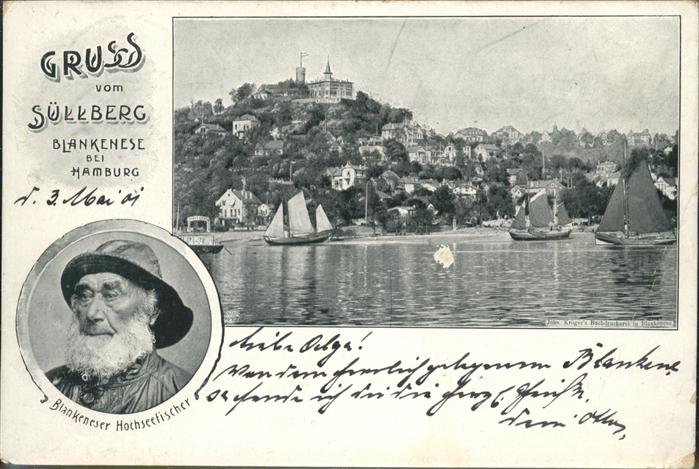 GRUSS
vom
SÜLLBERG
BLANKENESE
BEI
HAMBURG
d. 3. Mai 01
Johs. Kröger's Buchdruckerei in Blankenese
Liebe Olga!
Von dem herrlich gelegenen Blankene
se sende ich dir die herzl. Grüße.
dein Otto.
Blankeneser Hochseefischer